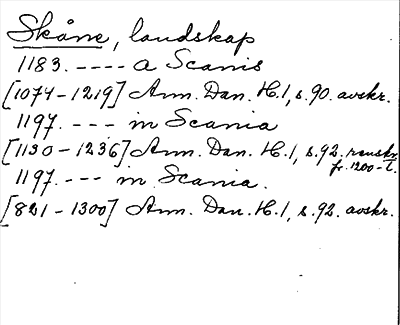 Skåne, landskap
1183. ---- a Scanis
[1074-1219] Ann. Dan. H.1, s.90. avskr.
1197. --- in Scania
[1130-1236] Ann. Dan. H.1, s.92.
fr. 1200-t.
1197. --- in Scania.
[821-1300] Ann. Dan. H.1, s.92. avskr.